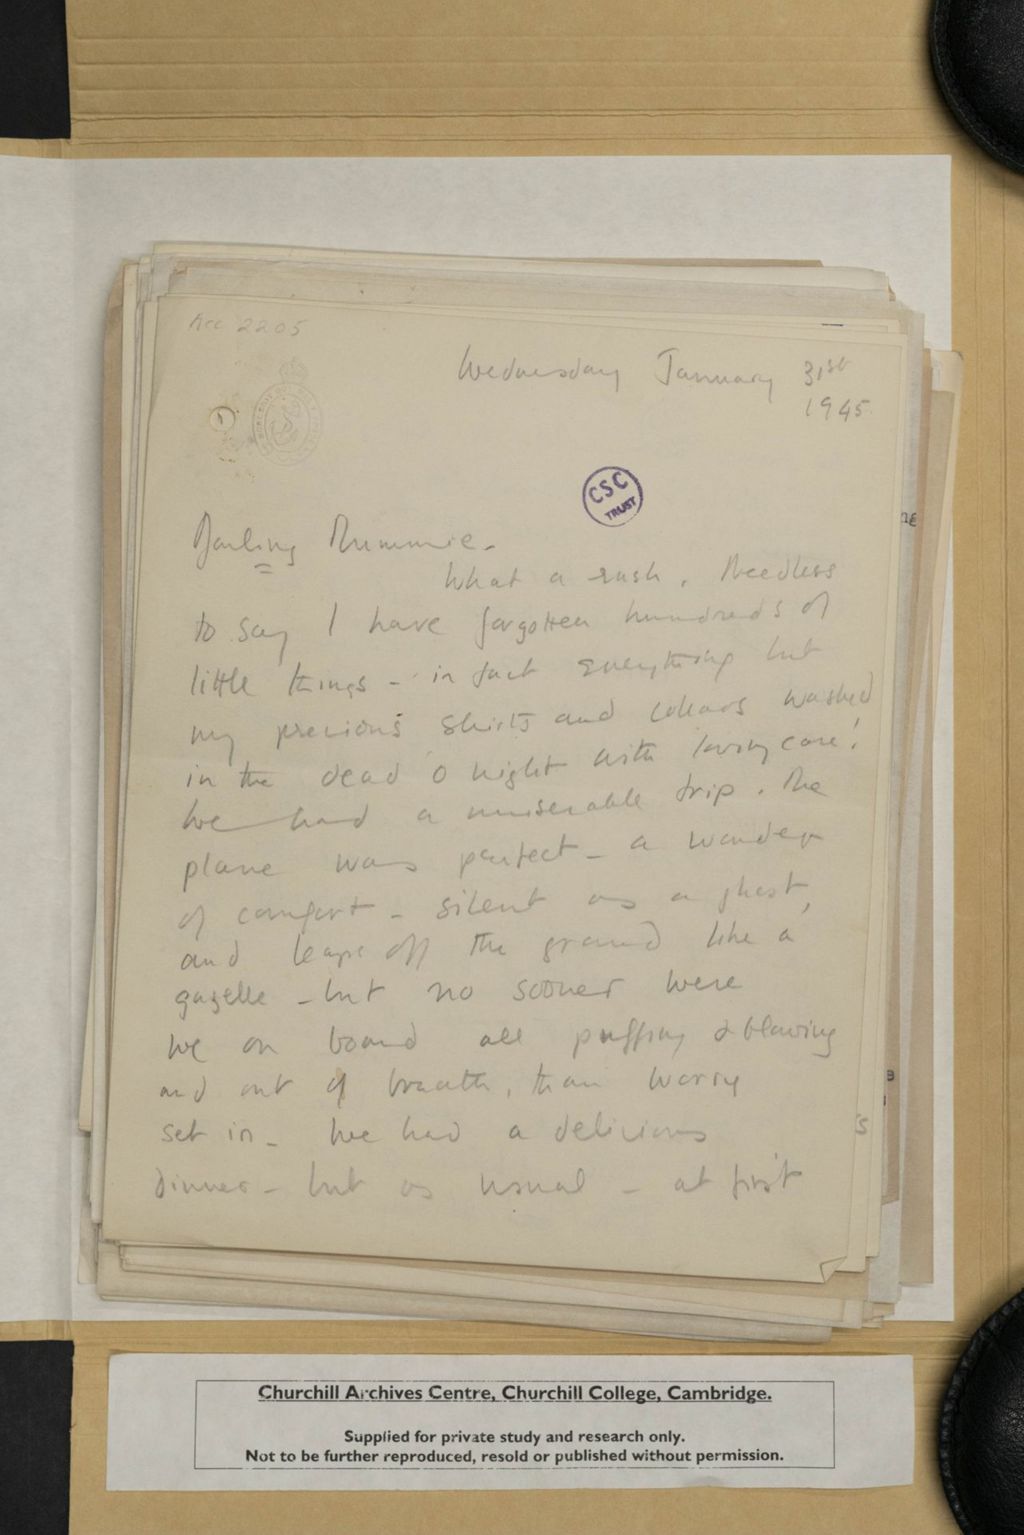 Acc 2205
Wednesday January 31st
1945
1
CSC
TRUST
Darling Mummie -
What a rush. Needless
to say I have forgotten hundreds of
little things - in fact everything but
my precious shirts and collars washed
in the dead o night with loving care!
We had a miserable trip. The
plane was perfect - a wonder
of comfort - silent as a ghost,
and leaps off the ground like a
gazelle - but no sooner were
we on board all puffing & blowing
and out of breath, than worry
set in - We had a delicious
dinner - but as usual - at first
Churchill Archives Centre, Churchill College, Cambridge.
Supplied for private study and research only.
Not to be further reproduced, resold or published without permission.